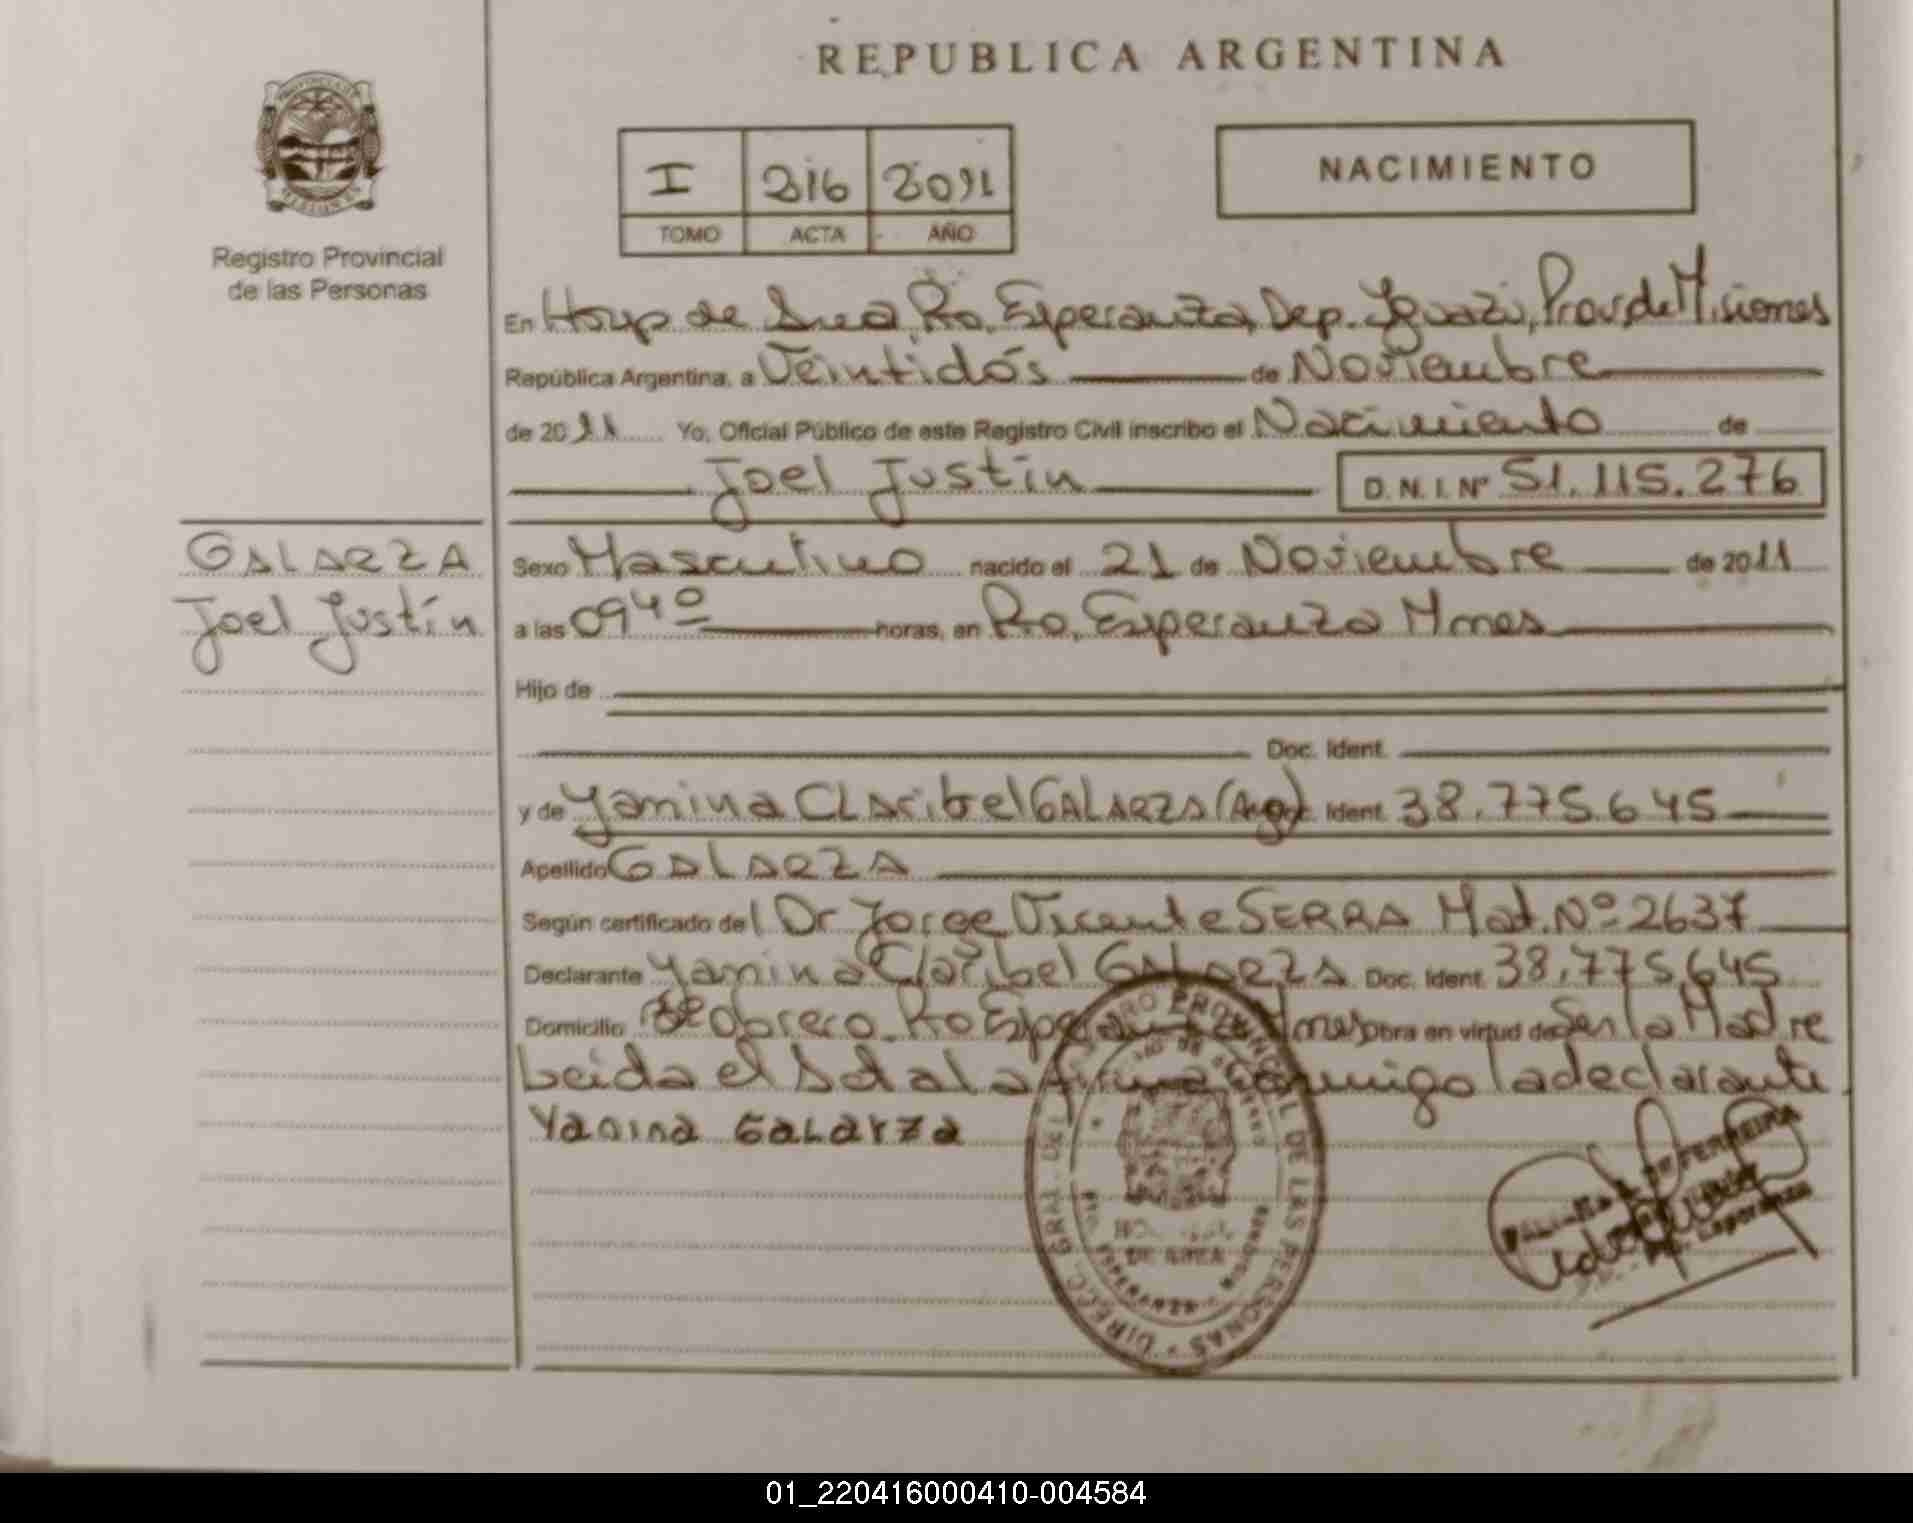 REPUBLICA ARGENTINA
I 216 2011
TOMO ACTA AÑO
NACIMIENTO
Registro Provincial
de las Personas
En Hosp de Area Pto. Esperanza, Dep. Iguazú, Prov de Misiones
República Argentina, a Veintidós de Noviembre
de 2011 Yo, Oficial Público de este Registro Civil inscribo el Nacimiento de
Joel Justín D.N.I. Nº 51.115.276
GALARZA
Joel Justín
Sexo Masculino nacido el 21 de Noviembre de 2011
a las 0940 horas, en Pto. Esperanza Mnes
Hijo de
Doc. Ident.
y de Yanina CLAribel GALARZA (Arg) Doc. Ident. 38.775.645
Apellido GALARZA
Según certificado del Dr Jorge Vicente SERRA Mat. Nº 2637
Declarante Yanina Claribel GALARZA Doc. Ident. 38.775.645
Domicilio Bº Obrero Pto Esperanza Mnes obra en virtud de Ser la Madre
Leida el Acta la firma conmigo la declarante
Yanina GaLarza
DIRECC. GRAL. DEL REGISTRO PROVINCIAL DE LAS PERSONAS
DE AREA
PTO. ESPERANZA - MISIONES
FERREIRA
Pto. Esperanza
01_220416000410-004584